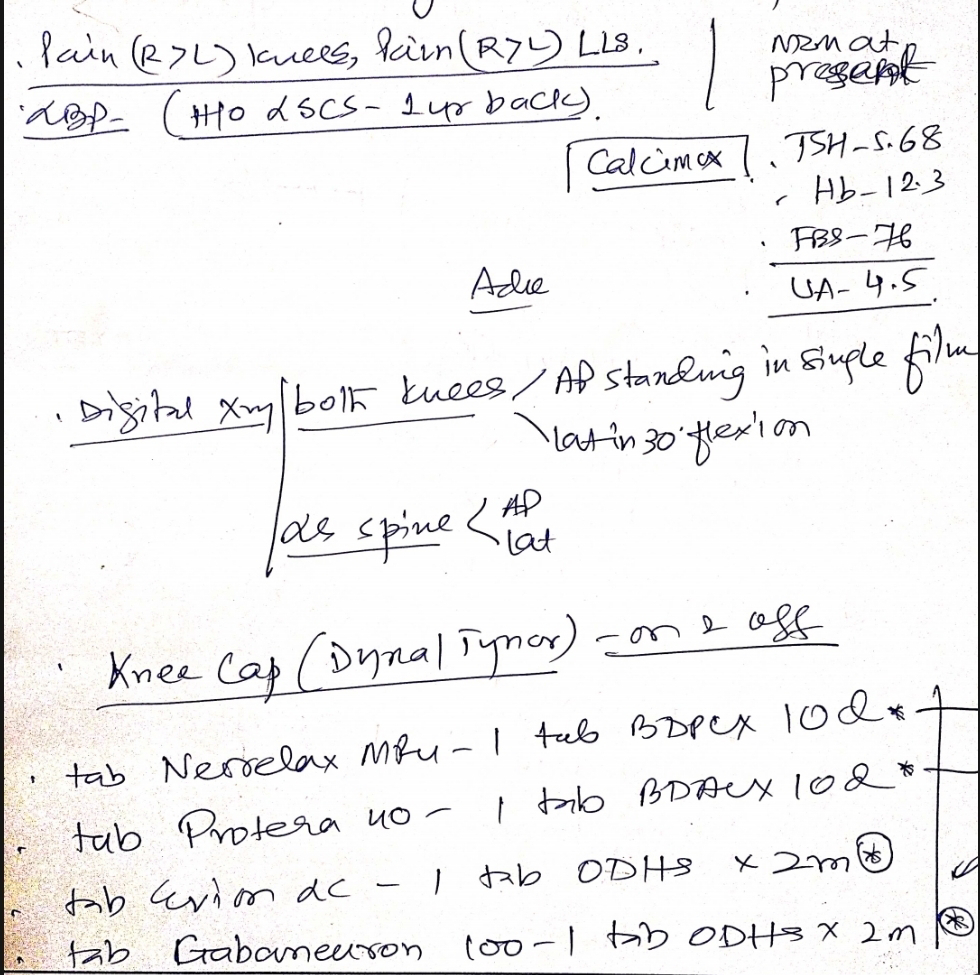 . Pain (R>L) knees, Pain (R>L) LLs.
NZM at present
LBP - (H/O LSCS - 1 yr back)
Calcimax
. TSH - 5.68
, Hb - 12.3
. FBS - 76
. UA - 4.5
Adv
. Digital Xray both knees / AP standing in single film
\ lat in 30° flexion
LS spine < AP
lat
. Knee Cap (Dyna/Tynor) - on & off
. tab MRu - 1 tab BDPC x 10d *
. tab 40 - 1 tab BDAC x 10d *
. tab Evion LC - 1 tab ODHS x 2m *
. tab Gabaneuron 100 - 1 tab ODHS x 2m *